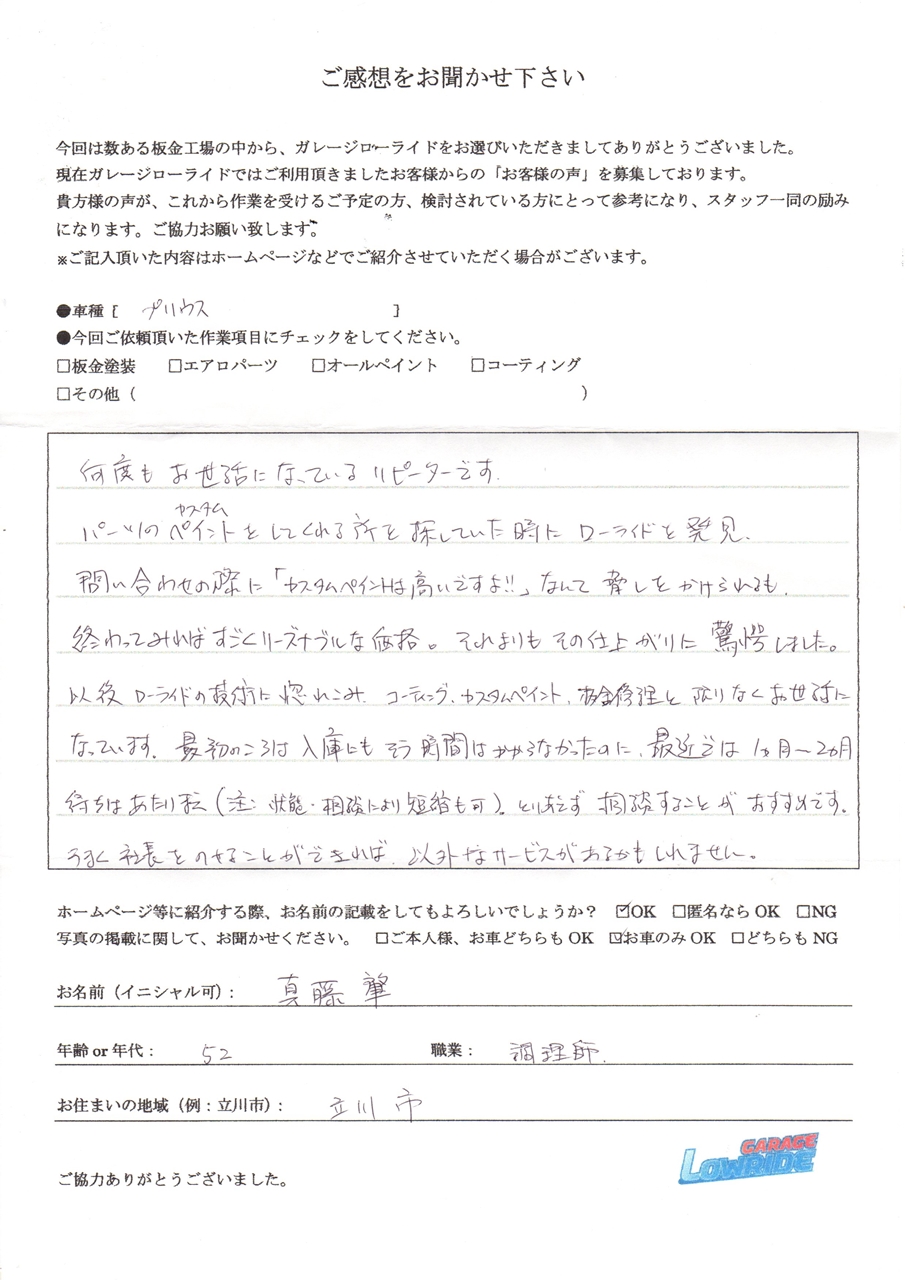 ご感想をお聞かせ下さい
今回は数ある板金工場の中から、ガレージローライドをお選びいただきましてありがとうございました。
現在ガレージローライドではご利用頂きましたお客様からの「お客様の声」を募集しております。
貴方様の声が、これから作業を受けるご予定の方、検討されている方にとって参考になり、スタッフ一同の励み
になります。ご協力お願い致します。
※ご記入頂いた内容はホームページなどでご紹介させていただく場合がございます。
●車種 [ プリウス ]
●今回ご依頼頂いた作業項目にチェックをしてください。
□板金塗装 □エアロパーツ □オールペイント □コーティング
□その他（ ）
何度もお世話になっているリピーターです.
カスタム
パーツのペイントをしてくれる所を探していた時にローライドを発見.
問い合わせの際に「カスタムペイントは高いですよ!!」なんて脅しをかけられるも.
終わってみればすごくリーズナブルな価格。それよりもその仕上がりに驚愕しました。
以後ローライドの技術に惚れこみ.コーティング.カスタムペイント.板金修理と限りなくお世話に
なっています.最初のころは入庫にもそう時間はかからなかったのに、最近では1ヵ月〜2ヵ月
待ちはあたり前(注:状態・相談により短縮も可)。とりあえず相談することがおすすめです.
うまく社長をのせることができれば.以外なサービスがあるかもしれません。
ホームページ等に紹介する際、お名前の記載をしてもよろしいでしょうか？ ☑OK □匿名なら OK □NG
写真の掲載に関して、お聞かせください。 □ご本人様、お車どちらも OK ☑お車のみ OK □どちらも NG
お名前（イニシャル可）： 真藤 肇
年齢 or 年代： 52 職業： 調理師.
お住まいの地域（例：立川市）： 立川市
GARAGE
LOWRIDE
ご協力ありがとうございました。